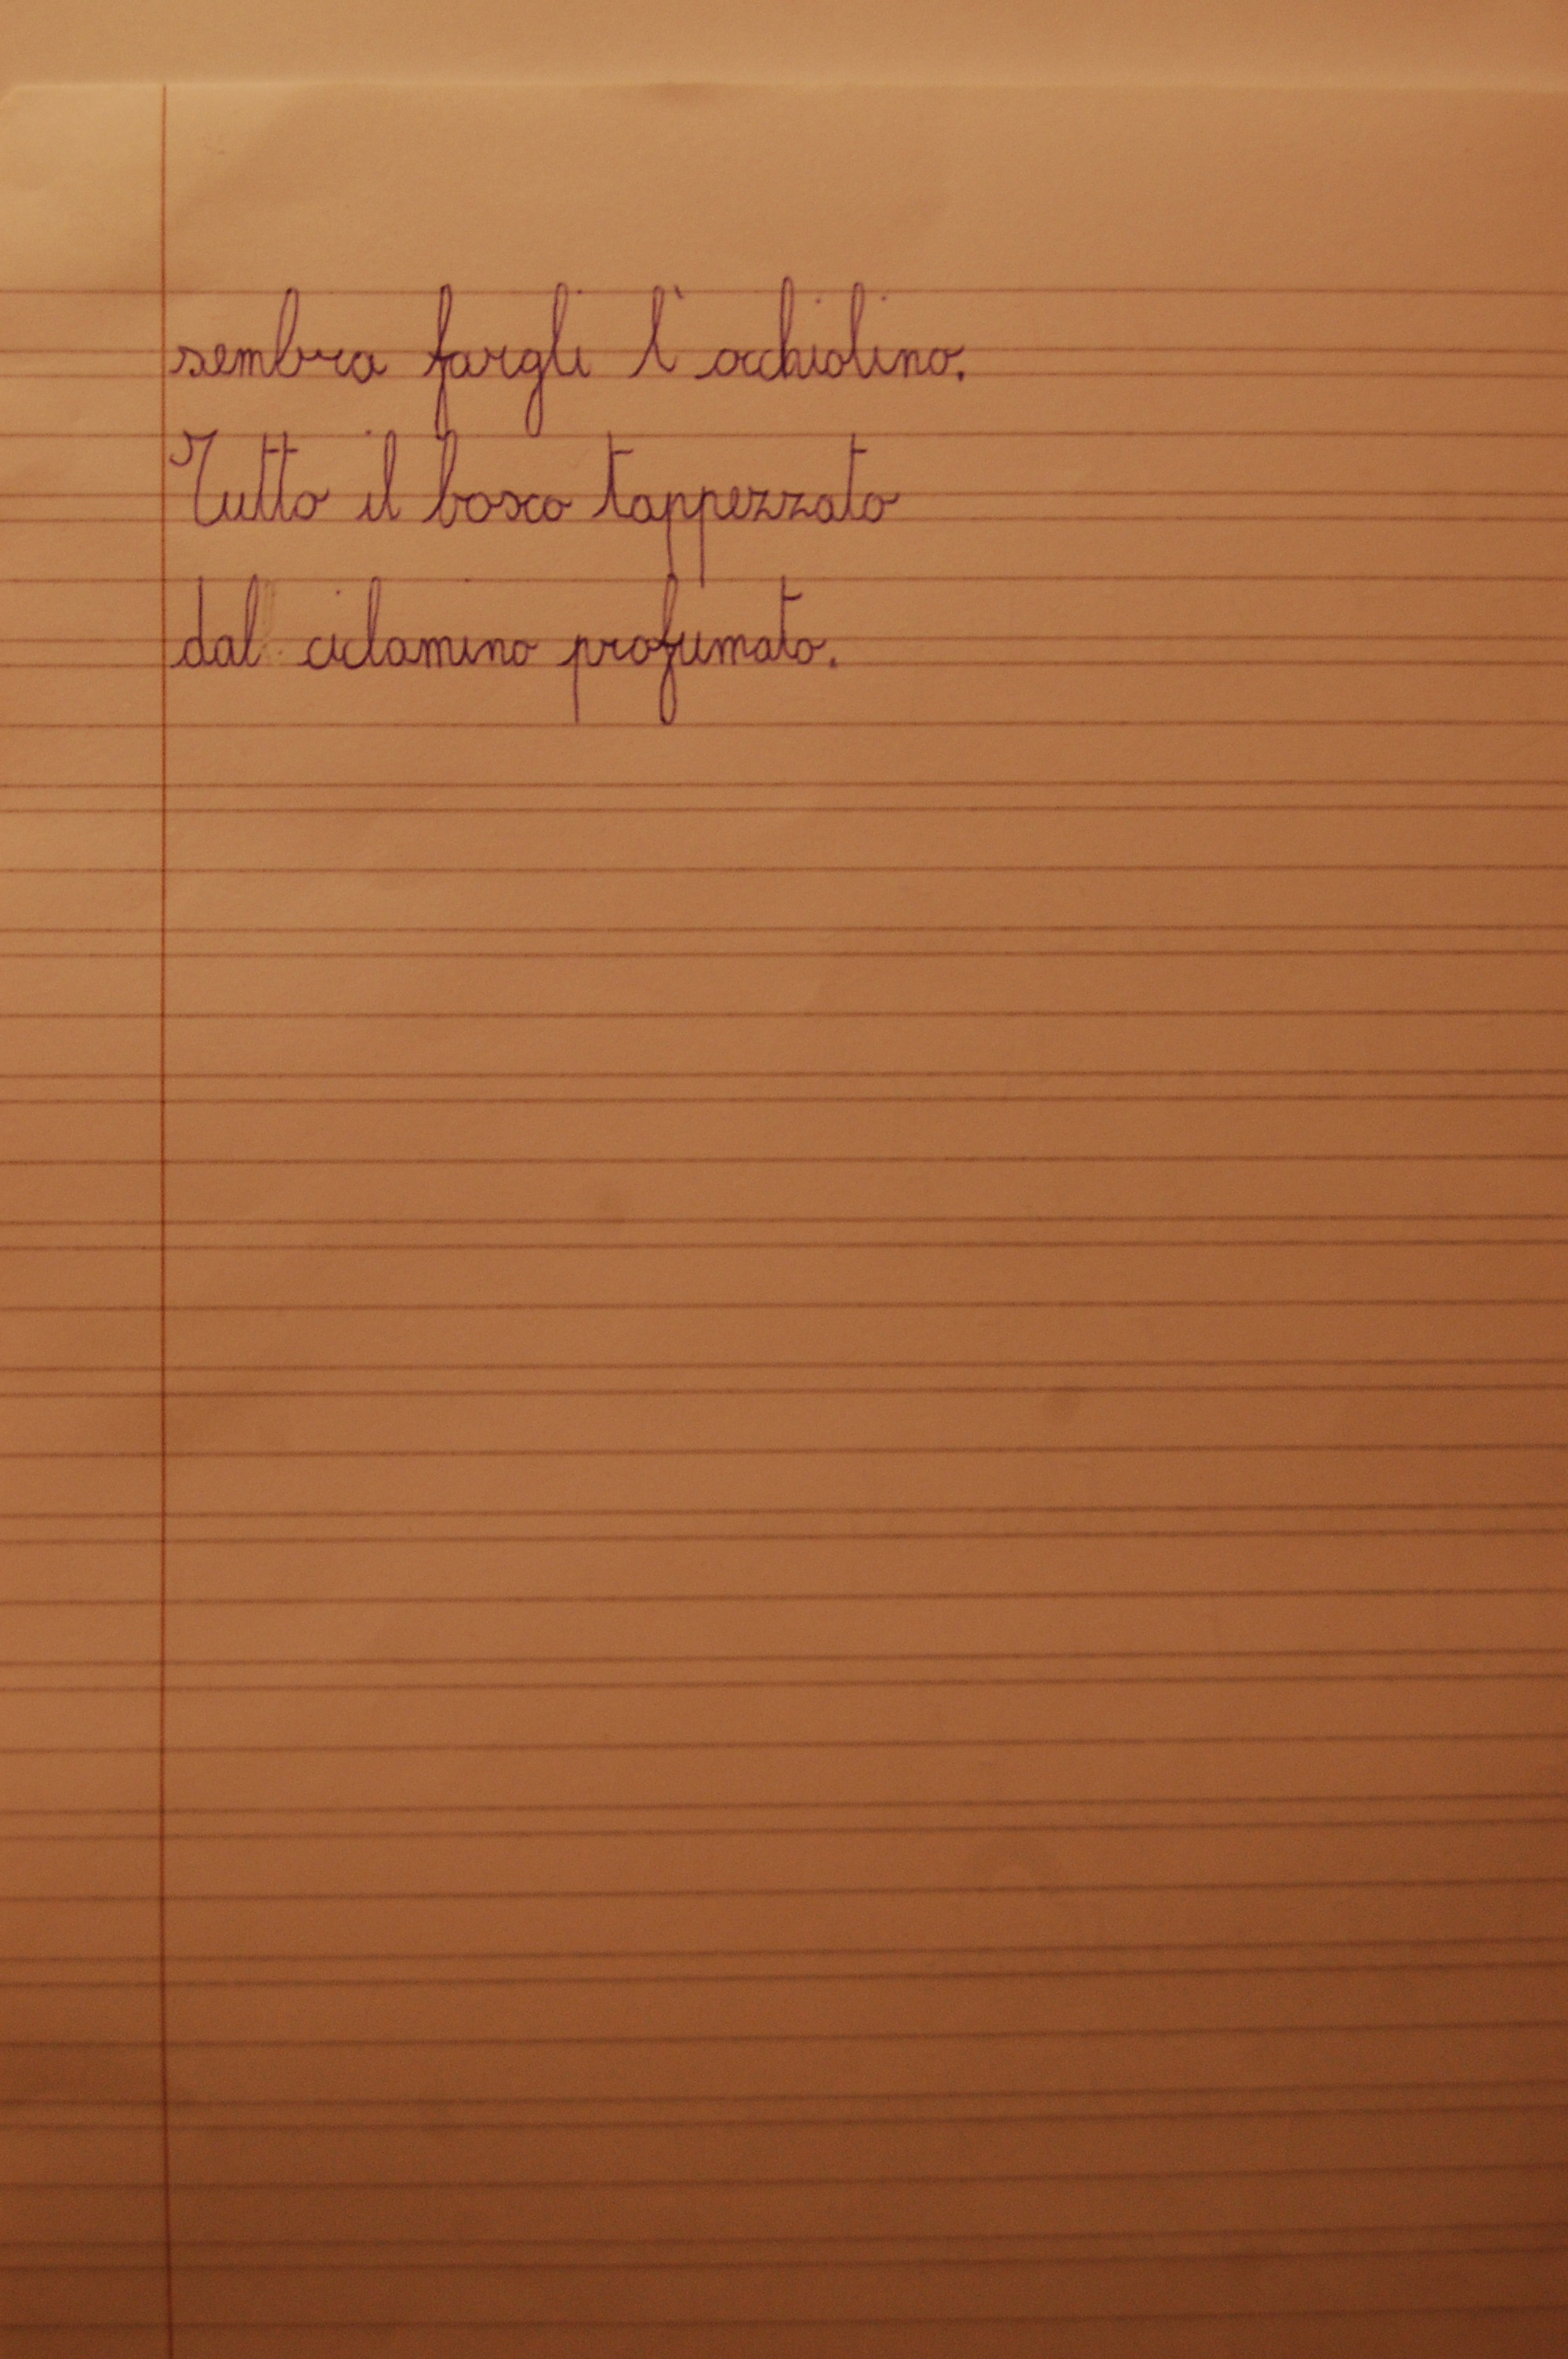 sembra fargli l'occhiolino.
Tutto il bosco tappezzato
dal ciclamino profumato.